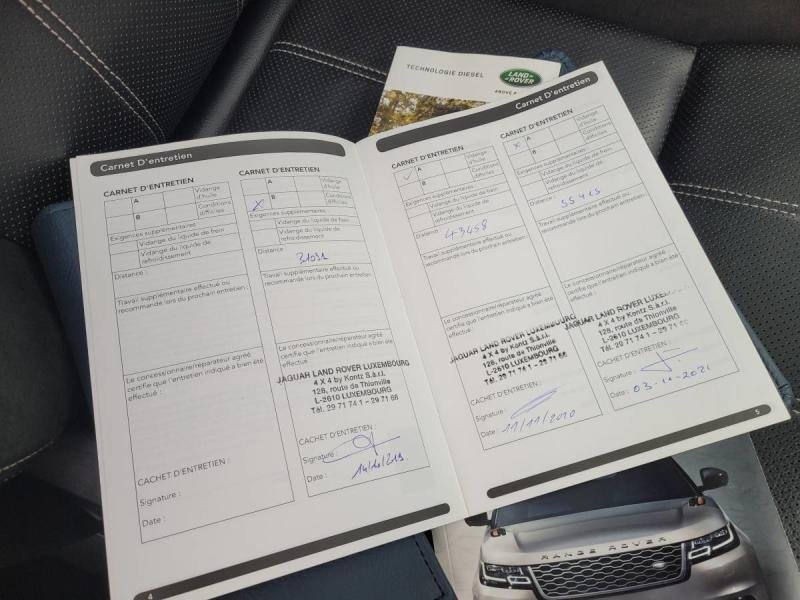 TECHNOLOGIE DIESEL
LAND ROVER
Carnet D'entretien
CARNET D'ENTRETIEN
A
Vidange d'huile
B
Conditions difficiles
Exigences supplémentaires :
Vidange du liquide de frein
Vidange du liquide de refroidissement
Distance :
Travail supplémentaire effectué ou
recommandé lors du prochain entretien :
Le concessionnaire/réparateur agréé
certifie que l'entretien indiqué a bien été
effectué :
CACHET D'ENTRETIEN :
Signature :
Date :
4
CARNET D'ENTRETIEN
A
Vidange d'huile
X
B
Conditions difficiles
Exigences supplémentaires :
Vidange du liquide de frein
Vidange du liquide de refroidissement
Distance :
31091
Travail supplémentaire effectué ou
recommandé lors du prochain entretien :
Le concessionnaire/réparateur agréé
certifie que l'entretien indiqué a bien été
effectué :
JAGUAR LAND ROVER LUXEMBOURG
4 X 4 by Kontz S.à.r.l.
128, route de Thionville
L-2610 LUXEMBOURG
Tél. 29 71 74 1 - 29 71 68
CACHET D'ENTRETIEN :
Signature :
Date :
Carnet D'entretien
CARNET D'ENTRETIEN
A
Vidange d'huile
B
Conditions difficiles
Exigences supplémentaires :
Vidange du liquide de frein
Vidange du liquide de refroidissement
Distance :
43458
Travail supplémentaire effectué ou
recommandé lors du prochain entretien :
Le concessionnaire/réparateur agréé
certifie que l'entretien indiqué a bien été
effectué :
JAGUAR LAND ROVER LUXEMBOURG
4 X 4 by Kontz S.à.r.l.
128, route de Thionville
L-2610 LUXEMBOURG
Tél. 29 71 74 1 - 29 71 68
CACHET D'ENTRETIEN :
Signature :
Date : 11/11/2020
CARNET D'ENTRETIEN
X
A
Vidange d'huile
B
Conditions difficiles
Exigences supplémentaires :
Vidange du liquide de frein
Vidange du liquide de refroidissement
Distance :
55415
Travail supplémentaire effectué ou
recommandé lors du prochain entretien :
Le concessionnaire/réparateur agréé
certifie que l'entretien indiqué a bien été
effectué :
JAGUAR LAND ROVER
4 X 4 by Kontz S.à.r.l.
128, route de Thionville
L-2610 LUXEMBOURG
Tél. 29 71 74 1 - 29 71 68
CACHET D'ENTRETIEN :
Signature :
Date : 03-11-2021
5
RANGE ROVER